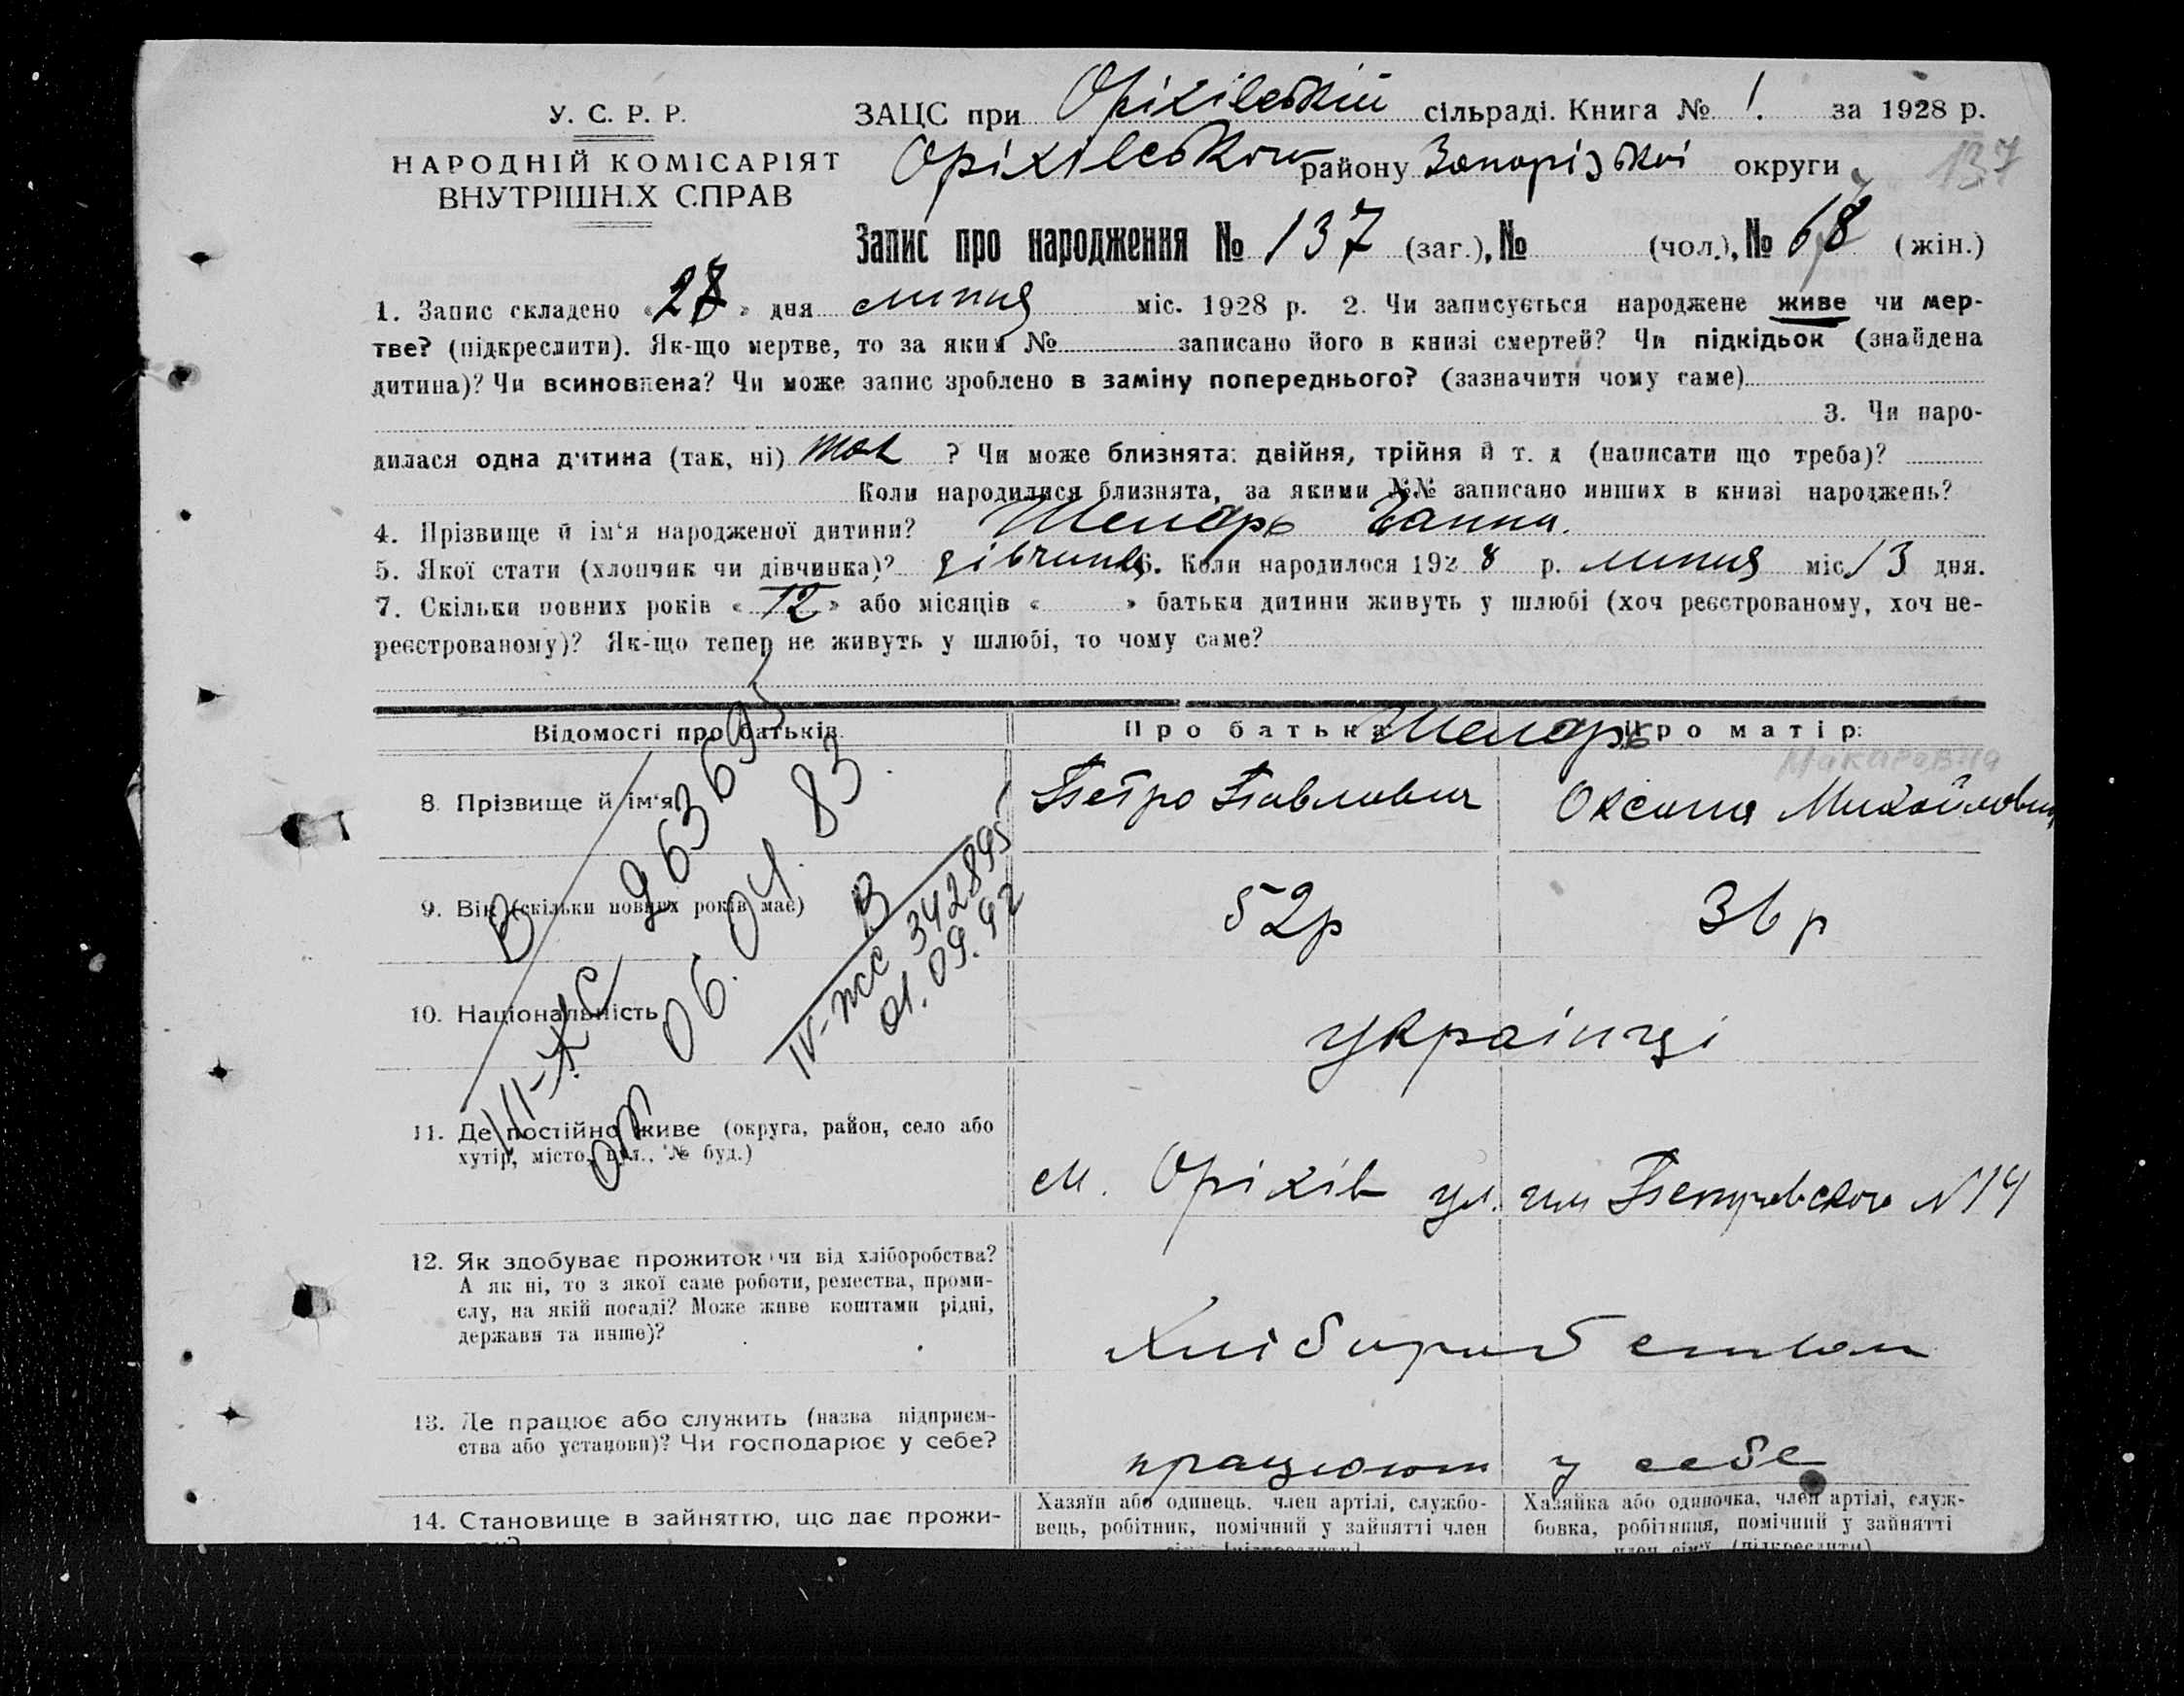 У. С. Р. Р.
НАРОДНІЙ КОМІСАРІЯТ
ВНУТРІШНІХ СПРАВ
ЗАЦС при Оріхівській сільраді. Книга № 1. за 1928 р.
Оріхівського району Запорізької округи
137
Запис про народження № 137 (заг.), № (чол.), № 68 (жін.)
1. Запис складено «28» дня липня міс. 1928 р. 2. Чи записується народжене живе чи мер-
тве? (підкреслити). Як-що мертве, то за яким № записано його в книзі смертей? Чи підкідьок (знайдена
дитина)? Чи всиновлена? Чи може запис зроблено в заміну попереднього? (зазначити чому саме)
3. Чи наро-
дилася одна дитина (так, ні) так ? Чи може близнята: двійня, трійня й т. д (написати що треба)?
Коли народилися близнята, за якими №№ записано инших в книзі народжень?
4. Прізвище й ім‘я народженої дитини? Шепарь Ганна.
5. Якої стати (хлопчик чи дівчинка)? дівчинка 6. Коли народилося 1928 р. липня міс 13 дня.
7. Скільки повних років «12» або місяців « » батьки дитини живуть у шлюбі (хоч реєстрованому, хоч не-
реєстрованому)? Як-що тепер не живуть у шлюбі, то чому саме?
Відомості про батьків
Про батька
Шепарь
Про матір:
Макаровна
8. Прізвище й ім‘я
Петро Павлович
Оксана Михайловна
9. Вік (скільки повних років має)
52р
36 р
10. Національність
українці
11. Де постійно живе (округа, район, село або
хутір, місто, вул., № буд.)
м. Оріхів ул. им №14
12. Як здобуває прожиток чи від хліборобства?
А як ні, то з якої саме роботи, ремества, проми-
слу, на якій посаді? Може живе коштами рідні,
держави та инше)?
Хліборобством
13. Де працює або служить (назва підприєм-
ства або установи)? Чи господарює у себе?
працюют у себе
14. Становище в зайняттю, що дає прожи-
Хазяїн або одинець, член артілі, службо-
вець, робітник, помічний у зайнятті член
Хазяйка або одиночка, член артілі, служ-
бовка, робітниця, помічний у зайнятті
член сім'ї (підкреслити)
В
III-ЖС
от 06.04.83.
В
IV-ЖС 342895
01.09.92